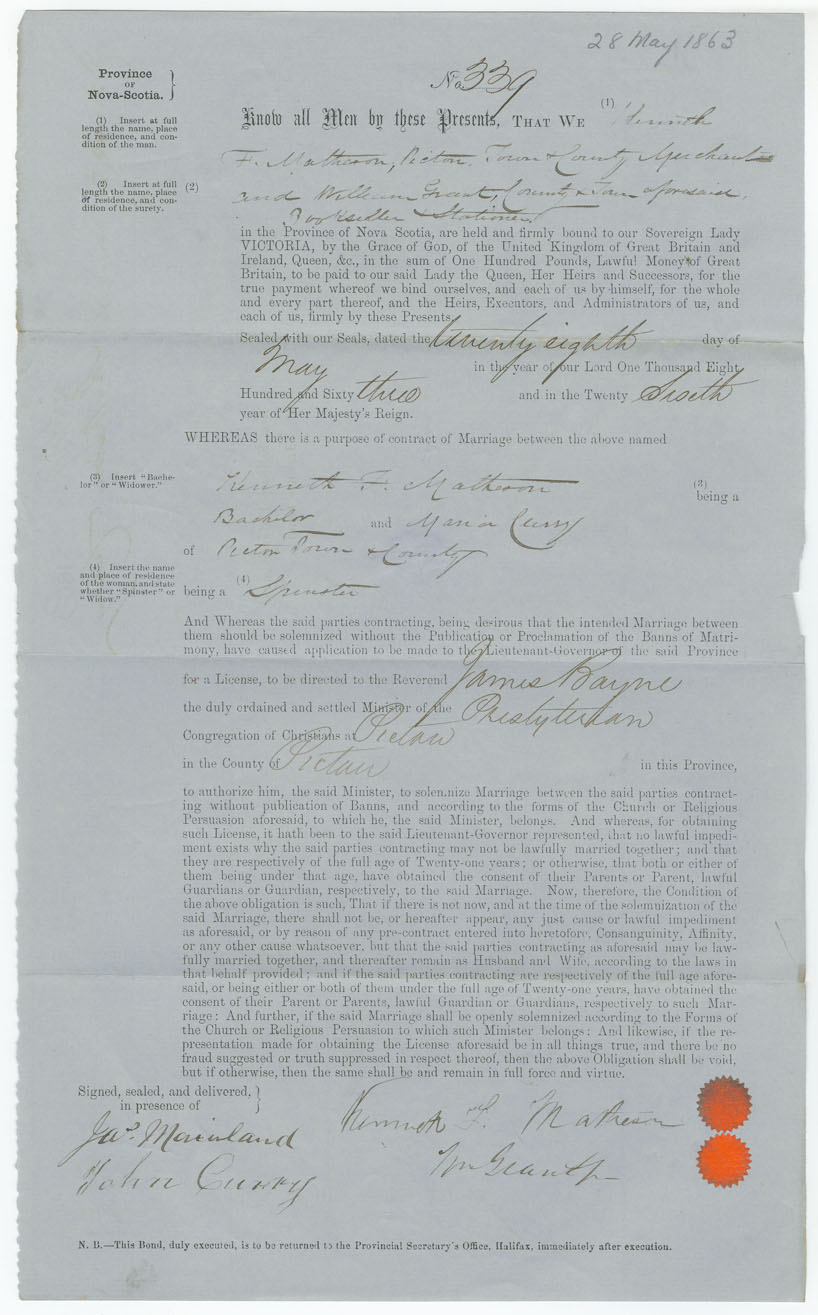 28 May 1863
Province
OF
Nova-Scotia.
No. 339
(1) Insert at full
length the name, place
of residence, and con-
dition of the man.
Know all Men by these Presents, THAT WE (1) Kenneth
F. Matheson, Picton Town & County Merchant
(2) Insert at full
length the name, place
of residence, and con-
dition of the surety.
(2) and William Grant, County & Town aforesaid,
Bookseller & Stationer
in the Province of Nova Scotia, are held and firmly bound to our Sovereign Lady
VICTORIA, by the Grace of GOD, of the United Kingdom of Great Britain and
Ireland, Queen, &c., in the sum of One Hundred Pounds, Lawful Money of Great
Britain, to be paid to our said Lady the Queen, Her Heirs and Successors, for the
true payment whereof we bind ourselves, and each of us by himself, for the whole
and every part thereof, and the Heirs, Executors, and Administrators of us, and
each of us, firmly by these Presents.
Sealed with our Seals, dated the twenty eighth day of
May in the year of our Lord One Thousand Eight
Hundred and Sixty three and in the Twenty Sixth
year of Her Majesty's Reign.
WHEREAS there is a purpose of contract of Marriage between the above named
(3) Insert "Bache-
lor" or "Widower."
Kenneth F. Matheson (3)
being a
Bachelor and Maria Curry
of Picton Town & County
(4) Insert the name
and place of residence
of the woman, and state
whether "Spinster" or
"Widow."
being a (4) Spinster
And Whereas the said parties contracting, being desirous that the intended Marriage between
them should be solemnized without the Publication or Proclamation of the Banns of Matri-
mony, have caused application to be made to the Lieutenant-Governor of the said Province
for a License, to be directed to the Reverend James Bayne
the duly ordained and settled Minister of the Presbyterian
Congregation of Christians at Pictou
in the County of Pictou in this Province,
to authorize him, the said Minister, to solemnize Marriage between the said parties contract-
ing without publication of Banns, and according to the forms of the Church or Religious
Persuasion aforesaid, to which he, the said Minister, belongs. And whereas, for obtaining
such License, it hath been to the said Lieutenant-Governor represented, that no lawful impedi-
ment exists why the said parties contracting may not be lawfully married together; and that
they are respectively of the full age of Twenty-one years; or otherwise, that both or either of
them being under that age, have obtained the consent of their Parents or Parent, lawful
Guardians or Guardian, respectively, to the said Marriage. Now, therefore, the Condition of
the above obligation is such, That if there is not now, and at the time of the solemnization of the
said Marriage, there shall not be, or hereafter appear, any just cause or lawful impediment
as aforesaid, or by reason of any pre-contract entered into heretofore, Consanguinity, Affinity,
or any other cause whatsoever, but that the said parties contracting as aforesaid may be law-
fully married together, and thereafter remain as Husband and Wife, according to the laws in
that behalf provided; and if the said parties contracting are respectively of the full age afore-
said, or being either or both of them under the full age of Twenty-one years, have obtained the
consent of their Parent or Parents, lawful Guardian or Guardians, respectively to such Mar-
riage: And further, if the said Marriage shall be openly solemnized according to the Forms of
the Church or Religious Persuasion to which such Minister belongs: And likewise, if the re-
presentation made for obtaining the License aforesaid be in all things true, and there be no
fraud suggested or truth suppressed in respect thereof, then the above Obligation shall be void,
but if otherwise, then the same shall be and remain in full force and virtue.
Signed, sealed, and delivered,
in presence of
Kenneth F. Matheson
Jas. Mainland
Wm Grant
John Curry
N. B.—This Bond, duly executed, is to be returned to the Provincial Secretary's Office, Halifax, immediately after execution.